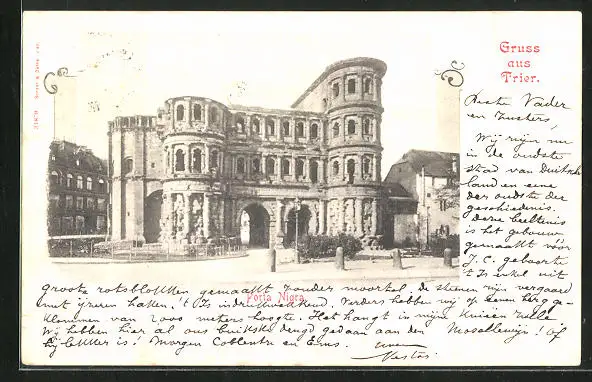 Gruss
aus
Trier.
Beste Vader
en Zusters,
Wij zijn nu
in de oudste
stad van Duitsch
land en eene
der oudste der
geschiedenis.
Deze beeltenis
is het gebouw
gemaakt vóór
J. C. geboorte
't Is enkel uit
groote rotsblokken gemaakt zonder moortel. de steenen zijn vergaard
met ijzeren haken. 't Is indrukwekkend. Verders hebben wij op eenen berg ge-
klommen van 2000 meters hoogte. Het hangt in mijne knieën zulle
Wij hebben hier al ons buikske deugd gedaan aan den Mosellewijn! Of
hij lekker is! Morgen Coblentz en Ems.
uwen
Nestor
Porta Nigra